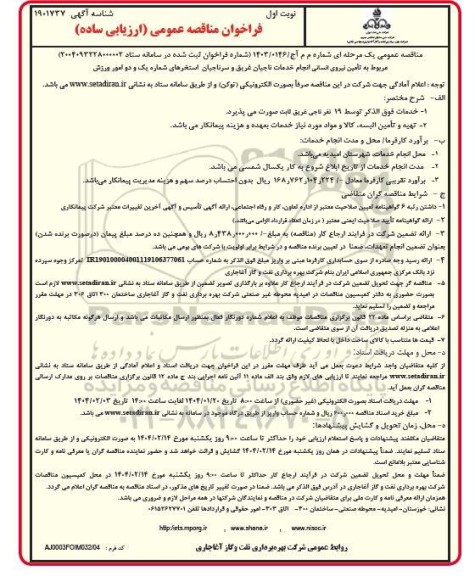 شناسه آگهی ۱۹۰۱۷۳۷
نوبت اول
فراخوان مناقصه عمومی (ارزیابی ساده)
مناقصه عمومی یک مرحله ای شماره م م آج/۱۴۰۳/۰۱۴۶ (شماره فراخوان ثبت شده در سامانه ستاد ۲۰۰۴۰۹۳۲۲۸۰۰۰۰۰۲)
مربوط به تأمین نیروی انسانی انجام خدمات ناجیان غریق و سرناجیان استخرهای شماره یک و دو امور ورزش
توجه : اعلام آمادگی جهت شرکت در این مناقصه صرفاً بصورت الکترونیکی (توکن) و از طریق سامانه ستاد به نشانی www.setadiran.ir می باشد.
الف- شرح مختصر:
۱- خدمات فوق الذکر توسط ۱۹ نفر ناجی غریق ثابت صورت می پذیرد.
۲- تهیه و تأمین البسه، کالا و مواد مورد نیاز خدمات بعهده و هزینه پیمانکار می باشد.
ب- برآورد کارفرما/ محل و مدت انجام خدمات:
۱- محل انجام خدمات، شهرستان امیدیه می‌باشد.
۲- مدت انجام خدمات از تاریخ ابلاغ شروع به کار یکسال شمسی می باشد.
۳- برآورد تقریبی کارفرما معادل -/۱۶۸,۷۶۲,۱۰۴,۲۲۴ ریال بدون احتساب درصد سهم و هزینه مدیریت پیمانکار می‌باشد.
ج- شرایط مناقصه گران متقاضی
۱- داشتن رتبه ۶ گواهینامه تعیین صلاحیت معتبر از اداره تعاون، کار و رفاه اجتماعی، ارائه آگهی تأسیس و آگهی آخرین تغییرات معتبر شرکت پیمانکاری
۲- ارائه گواهینامه تأیید صلاحیت ایمنی معتبر ( در زمان انعقاد قرارداد الزامی می‌باشد.)
۳- ارائه تضمین شرکت در فرآیند ارجاع کار (مناقصه) به مبلغ -/۸,۴۳۸,۰۰۰,۰۰۰ ریال و همچنین ده درصد مبلغ پیمان (درصورت برنده شدن)
بعنوان تضمین انجام تعهدات، ضمنا در تعیین برنده مناقصه و در شرایط برابر اولویت با شرکت های بومی می باشد.
۴- ارائه رسید وجه صادره از سوی حسابداری کارفرما مبنی بر واریز مبلغ فوق الذکر به شماره حساب IR190100004001119106377061 تمرکز وجوه سپرده
نزد بانک مرکزی جمهوری اسلامی ایران بنام شرکت بهره برداری نفت و گاز آغاجاری
۵- مناقصه گر جهت تحویل تضمین شرکت در فرآیند ارجاع کار علاوه بر بارگذاری تصویر تضمین از طریق سامانه ستاد به نشانی www.setadiran.ir لازم است
بصورت حضوری به دفتر کمیسیون مناقصات در امیدیه محوطه غیر صنعتی شرکت بهره برداری نفت و گاز آغاجاری ساختمان ۳۰۰ اتاق ۳۰۶ در مهلت مقرر
مراجعه و تضمین را تسلیم نماید.
۶- متقاضی براساس ماده ۲۲ قانون برگزاری مناقصات موظف به اعلام شماره دورنگار فعال بمنظور ارسال مکاتبات می باشد و ارسال هرگونه مکاتبه به دورنگار
اعلامی به منزله تصدیق دریافت آن از سوی متقاضی است.
۷- قیمت ها متناسب با کالای ساخت داخل با لحاظ کیفیت ارائه گردد.
د- محل و مهلت دریافت اسناد:
از کلیه متقاضیان واجد شرایط دعوت بعمل می آید ظرف مهلت مقرر در این فراخوان جهت دریافت اسناد و اعلام آمادگی از طریق سامانه ستاد به نشانی
www.setadiran.ir مراجعه نمایند تا ارزیابی های لازم وفق بند الف ماده ۱۱ آئین نامه اجرایی بند ج ماده ۱۲ قانون برگزاری مناقصات بر روی مدارک ارسالی
مناقصه گران بعمل آید.
۱- مهلت دریافت اسناد بصورت الکترونیکی (غیر حضوری) از ساعت ۸:۰۰ تاریخ ۱۴۰۴/۰۱/۲۰ لغایت ساعت ۱۴:۰۰ تاریخ ۱۴۰۴/۰۲/۰۳
۲- مبلغ خرید اسناد مناقصه ۶۰۰,۰۰۰ ریال و شماره حساب واریز از طریق درگاه موجود در سامانه به نشانی www.setadiran.ir می باشد.
ه- محل، زمان تحویل و گشایش پیشنهادها:
متقاضیان مکلفند پیشنهادات و پاسخ استعلام ارزیابی خود را حداکثر تا ساعت ۹:۰۰ روز یکشنبه مورخ ۱۴۰۴/۰۲/۱۴ به صورت الکترونیکی و از طریق سامانه
ستاد تسلیم نمایند. ضمناً پیشنهادات در همان روز یکشنبه مورخ ۱۴۰۴/۰۲/۱۴ گشایش و قرائت خواهد شد و حضور نماینده مناقصه گران با معرفی نامه و کارت
شناسایی معتبر بلامانع است.
ضمناً مهلت و محل تحویل تضمین شرکت در فرآیند ارجاع کار حداکثر تا ساعت ۹:۰۰ روز یکشنبه مورخ ۱۴۰۴/۰۲/۱۴ در محل کمیسیون مناقصات
شرکت بهره برداری نفت و گاز آغاجاری در آدرس فوق الذکر می باشد. ضمنا در صورت تغییر تاریخ های مذکور، در اسناد مناقصه به مناقصه گران اعلام می گردد.
همزمان ارائه معرفی نامه و کارت ملی برای متقاضیان شرکت در مناقصه و نمایندگان شرکتها در همه مراحل لازم و ضروری می باشد.
نشانی: خوزستان-امیدیه-محوطه صنعتی- ساختمان ۳۰۰- اتاق ۳۰۳-امور حقوقی و قراردادها تلفن: ۰۶۱۵۲۶۲۷۷۰۱
http://iets.mporg.ir , www.shana.ir , www.nisoc.ir
روابط عمومی شرکت بهره‌برداری نفت و گاز آغاجاری
کد فرم : AJ0003FOIM032/04